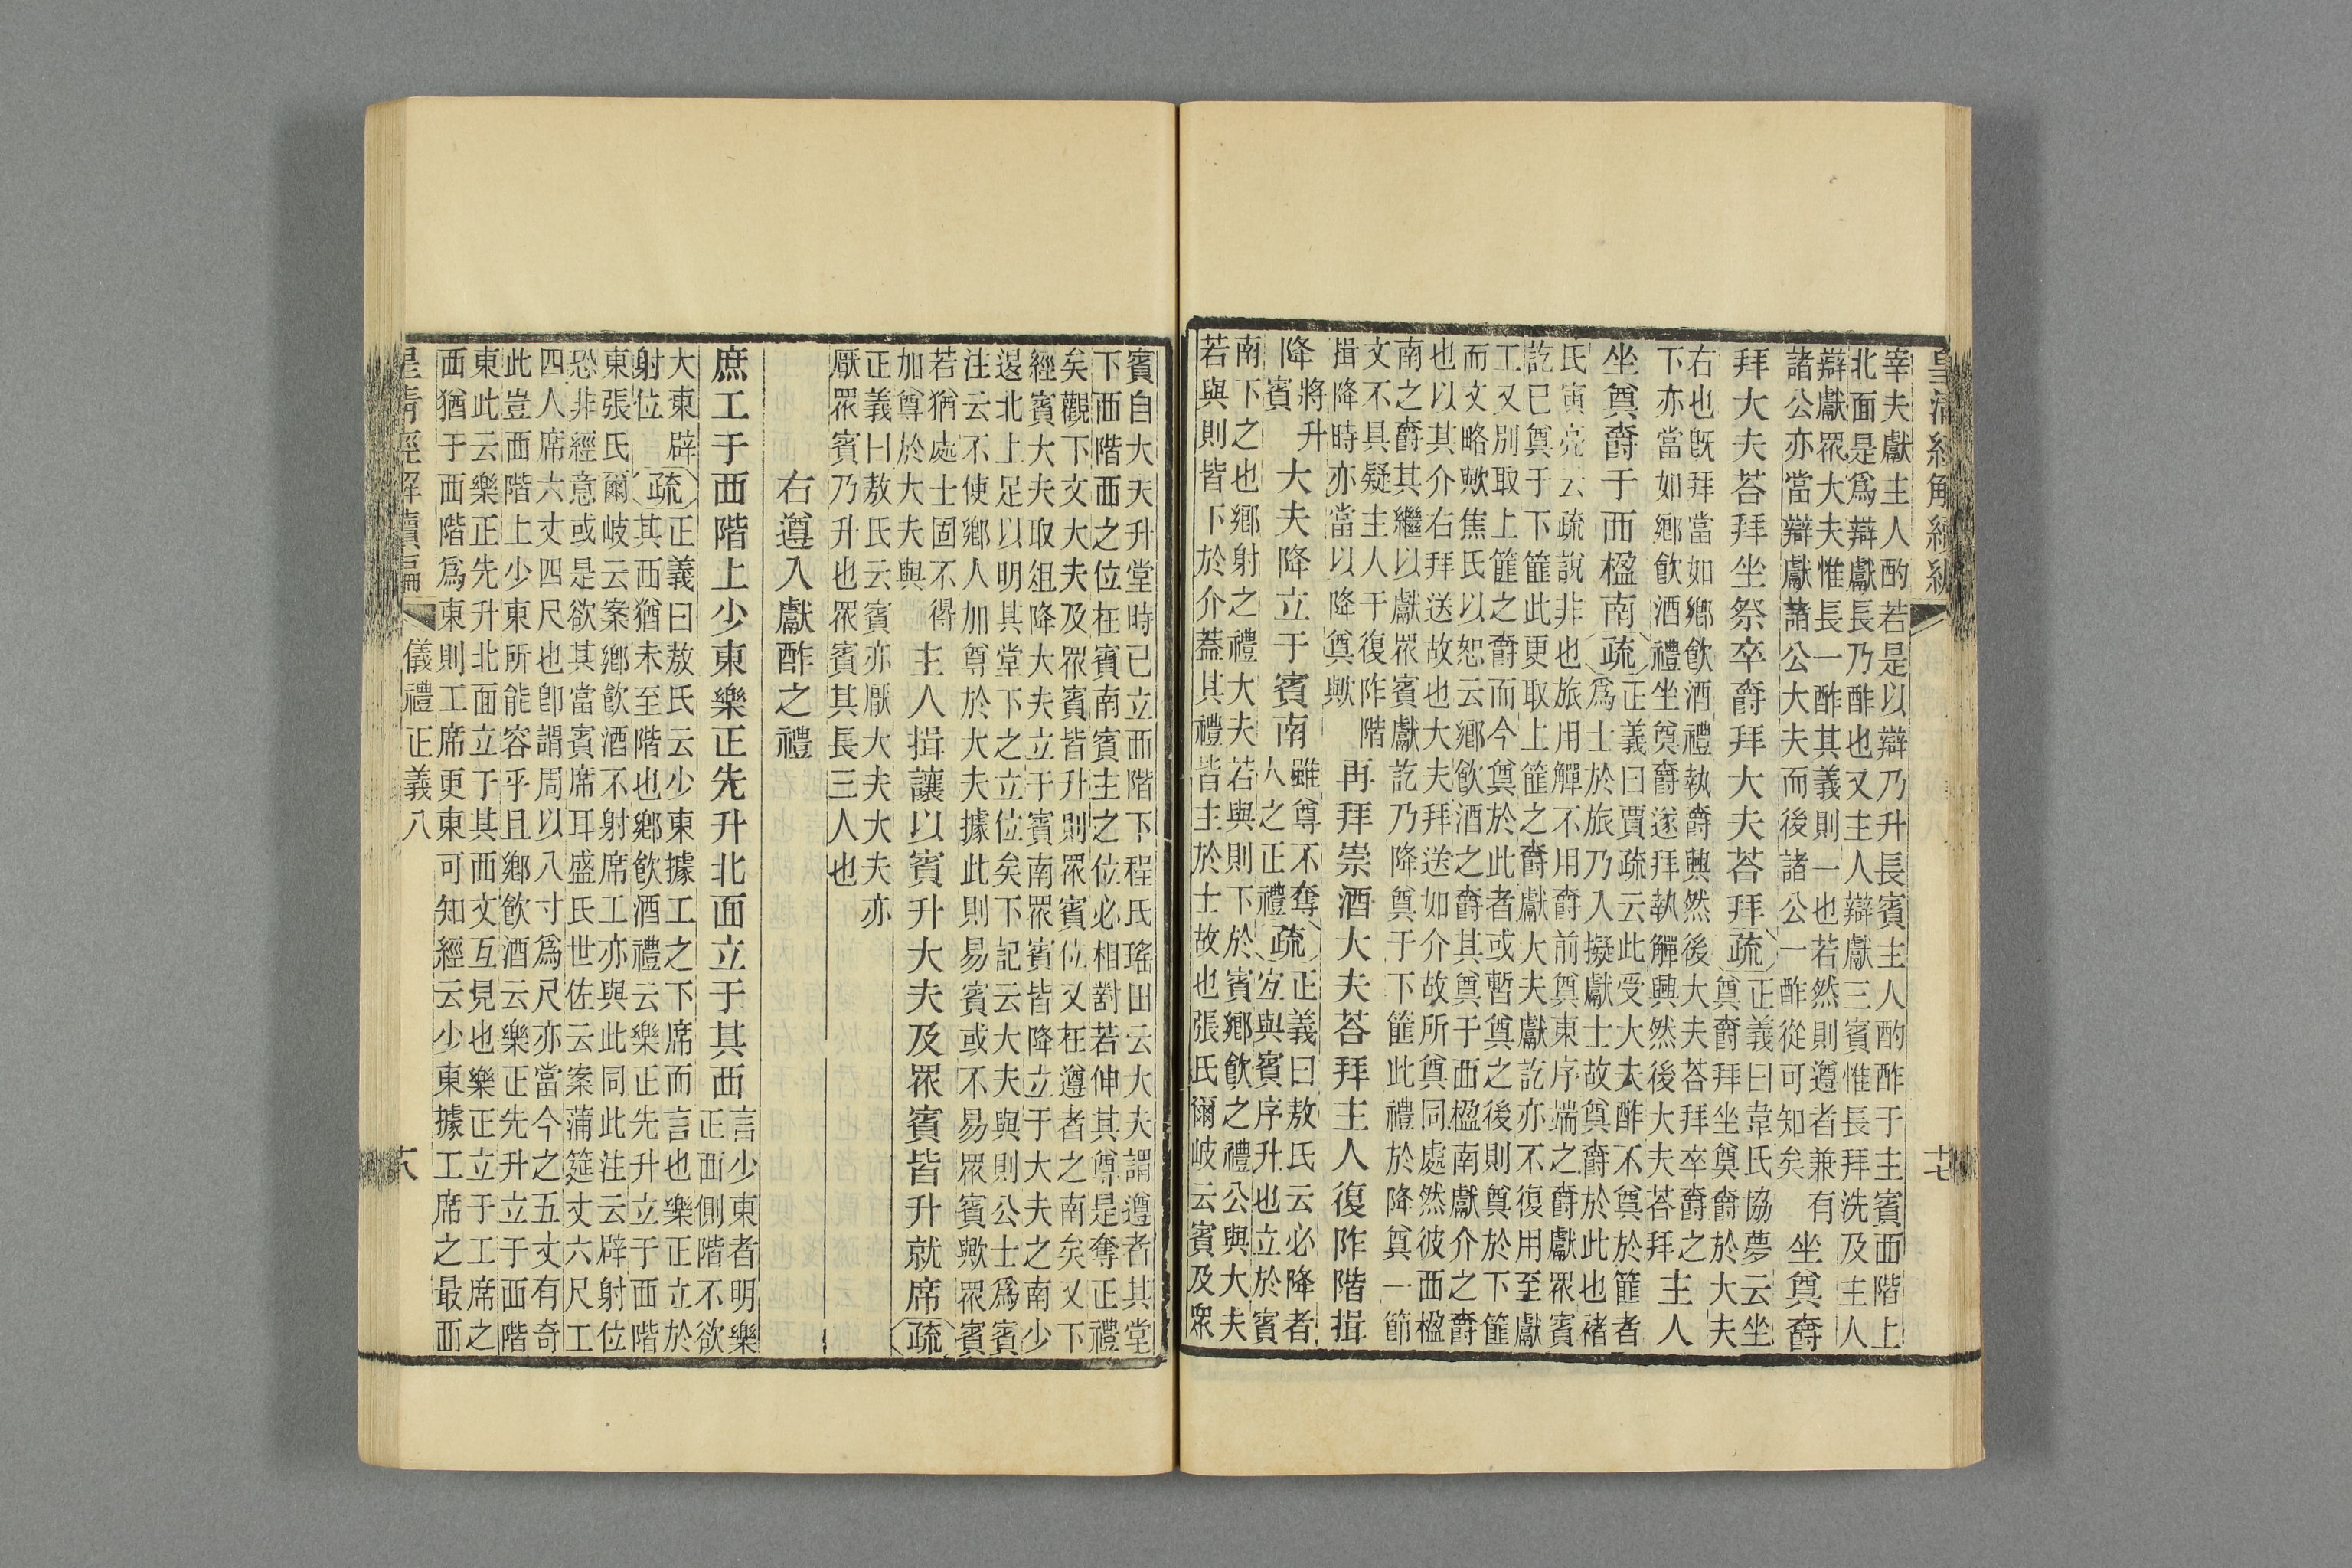 皇清經解續編
十七
宰夫獻主人酌若是以辯乃升長賓主人酌酢于主賓西階上
北面是爲辯獻長乃酢也又主人辯獻三賓惟長拜洗及主人
辯獻眾大夫惟長一酢其義則一也若然則遵者兼有
諸公亦當辯獻諸公大夫而後諸公一酢從可知矣
坐奠爵
拜大夫荅拜坐祭卒爵拜大夫荅拜疏
正義曰韋氏協夢云坐
奠爵拜坐奠爵於大夫
右也旣拜當如鄉飲酒禮執爵興然後大夫荅拜卒爵之
下亦當如鄉飲酒禮坐奠爵遂拜執觶興然後大夫荅拜
主人
坐奠爵于西楹南疏
正義曰賈疏云此受大夫酢不奠於篚者
爲士於旅乃入擬獻士故奠爵於此也褚
氏寅亮云疏說非也旅用觶不用爵前奠東序端之爵獻眾賓
訖已奠于下篚此更取上篚之爵獻大夫獻訖亦不復用至獻
工又別取上篚之爵而今奠於此者或暫奠之後則奠於下篚
而文略歟焦氏以恕云鄉飲酒之爵其奠于西楹南獻介之爵
也以其介右拜送故也大夫拜送如介故所奠同處然彼西楹
南之爵其繼以獻眾賓獻訖乃降奠于下篚此禮於降奠一節
文不具疑主人于復阼階
揖降時亦當以降奠歟
再拜崇酒大夫荅拜主人復阼階揖
降
將升
賓
大夫降立于賓南
雖尊不奪
人之正禮
疏
正義曰敖氏云必降者
宐與賓序升也立於賓
南下之也鄉射之禮大夫若與則下於賓鄉飲之禮公與大夫
若與則皆下於介蓋其禮皆主於士故也張氏爾岐云賓及眾
賓自大夫升堂時已立西階下程氏瑤田云大夫謂遵者其堂
下西階西之位在賓南賓主之位必相對若伸其尊是奪正禮
矣觀下文大夫及眾賓皆升則眾賓位又在遵者之南矣又下
經賓大夫取俎降大夫立于賓南眾賓皆降立于大夫之南少
退北上足以明其堂下之立位矣下記云大夫與則公士爲賓
注云不使鄉人加尊於大夫據此則易賓或不易眾賓歟眾賓
若猶處士固不得
加尊於大夫與
主人揖讓以賓升大夫及眾賓皆升就席疏
正義曰敖氏云賓亦厭大夫大夫亦
厭眾賓乃升也眾賓其長三人也
右遵入獻酢之禮
庶工于西階上少東樂正先升北面立于其西
言少東者明樂
正西側階不欲
大東辟
射位
疏
正義曰敖氏云少東據工之下席而言也樂正立於
其西猶未至階也鄉飲酒禮云樂正先升立于西階
東張氏爾岐云案鄉飲酒不射席工亦與此同此注云辟射位
恐非經意或是欲其當賓席耳盛氏世佐云案蒲筵丈六尺工
四人席六丈四尺也卽謂周以八寸爲尺亦當今之五丈有奇
此豈西階上少東所能容乎且鄉飲酒云樂正先升立于西階
東此云樂正先升北面立于其西文互見也樂正立于工席之
西猶于西階爲東則工席更東可知經云少東據工席之最西
皇清經解續編
儀禮正義八
十八